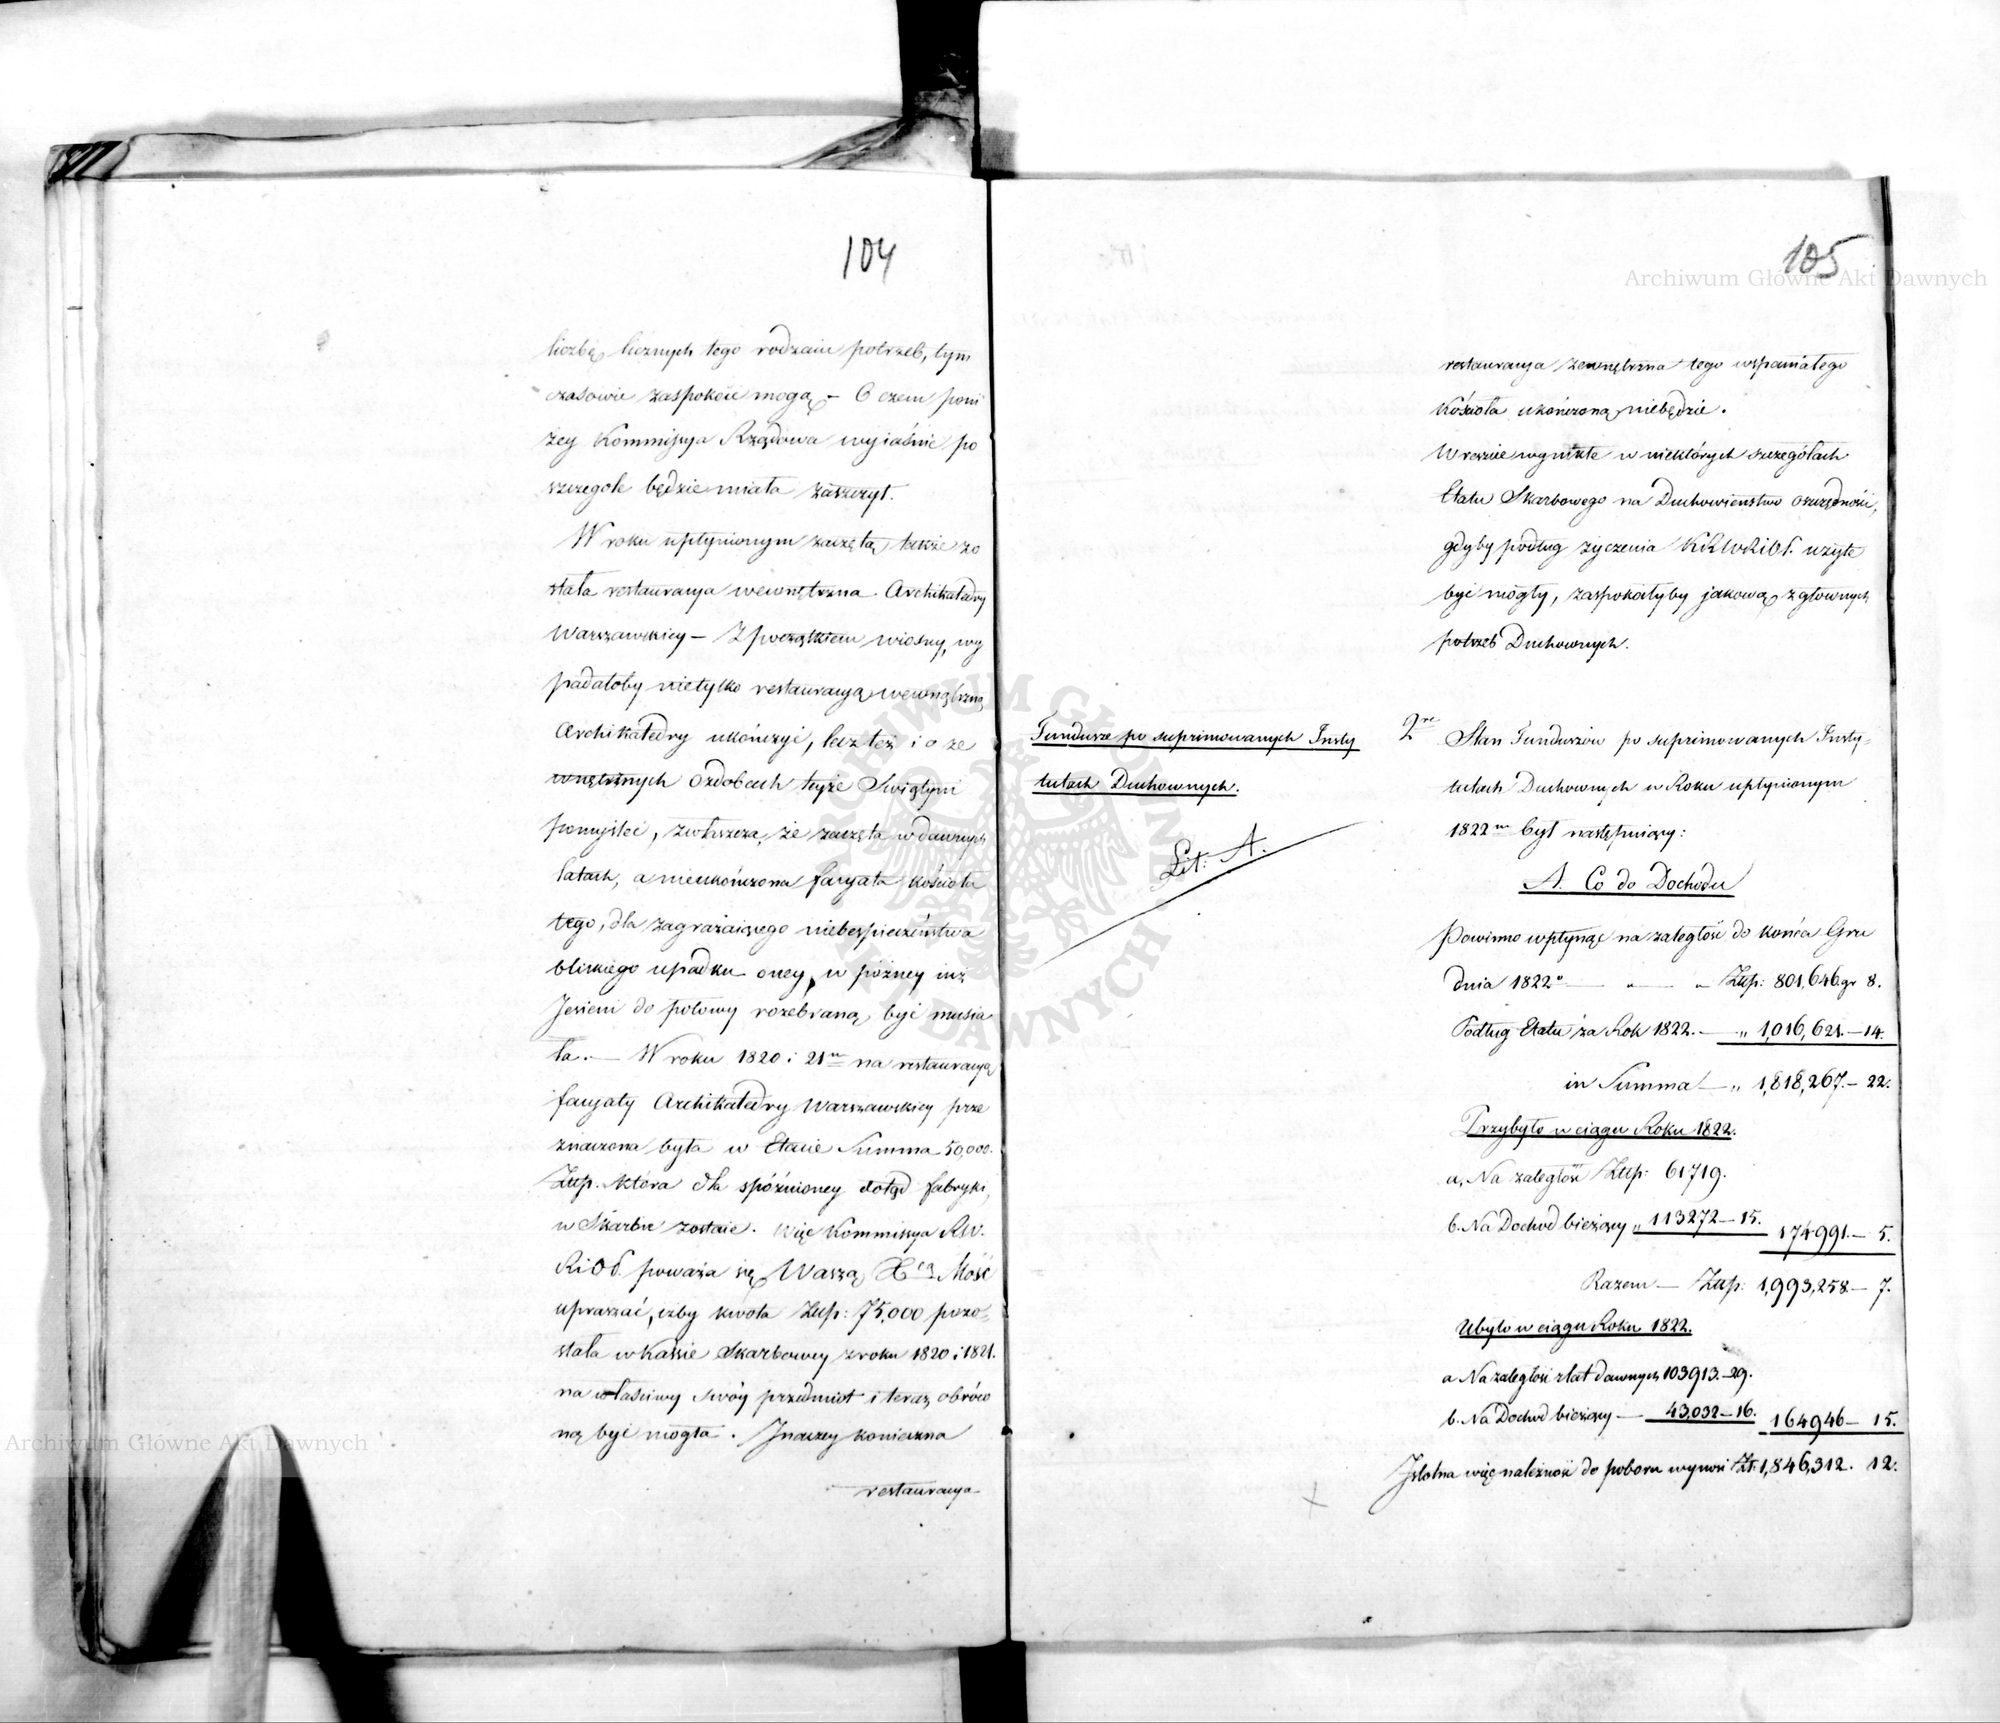 104
liczbę licznych tego rodzaiu potrzeb, tym
czasowie zaspokoić mogą – O czem poni
żey Kommissya Rządowa wyiaśnić po
szczegole będzie miała zaszczyt.
W roku upłynionym zaczętą także zo
stała restauracya wewnętrzna Archikatedry
Warszawskiey – Z początkiem wiosny, wy
padałoby nietylko restauracyą wewnętrzną
Archikatedry ukończyć, lecz też i o ze
wnętrznych ozdobach teyże Swiątyni
pomyśleć, zwłaszcza, że zaczęta w dawnych
latach, a nieukończona facyata kościoła
tego, dla zagrażaiącego niebespieczeństwa
bliskiego upadku oney, w późney iuż
Jesieni do połowy rozebraną być musia
ła. — W roku 1820 i 21m na restauracyą
facyaty Archikatedry Warszawskiey prze
znaczona była w Etacie Summa 50,000.
Złłp. która dla spóźnioney dotąd fabryki,
w Skarbie zostaie. Więc Kommissya R.W.
R. i O.P. poważa się Waszą Xcą Mość
upraszać, iżby kwota Złłp: 75,000 pozo-
stała w Kassie Skarbowey z roku 1820 i 1821.
na właściwy swóy przedmiot i teraz obróco
ną być mogła. Jnaczey konieczna
restauracya
105
restauracya zewnętrzna tego wspaniałego
Kościoła ukończoną niebędzie.
Wreszcie wynikłe w niektórych szczegółach
Etatu Skarbowego na Duchowieństwo oszczędności,
gdyby podług życzenia K.R.W.R.i O.P. użyte
być mogły, zaspokoiłyby jakową z głownych
potrzeb Duchownych.
Fundusze po suprimowanych Insty
tutach Duchownych.
Lit: A.
2re Stan Funduszów po suprimowanych Insty-
tutach Duchownych w Roku upłynionym
1822m był następuiący:
A. Co do Dochodu
Powinno wpłynąć na zaległość do końca Gru
dnia 1822o — „ — „ Złłp: 801,646. gr 8.
Podług Etatu za Rok 1822. — „ 1,016,621. – 14.
in Summa — „ 1,818,267. – 22.
Przybyło w ciągu Roku 1822.
a, Na zaległość Złłp: 61719.
b. Na Dochod bieżący „ 113272 – 15. 174991. – 5.
Razem — Złłp: 1,993,258 – 7.
Ubyło w ciągu Roku 1822.
a Na zaległość z lat dawnych 103913. – 29.
b. Na Dochod bieżący — 43,032 – 16. 164946 – 15.
Jstotna więc należność do poboru wynosi Zł: 1,846,312. 12.
Archiwum Główne Akt Dawnych
ARCHIWUM GŁÓWNE AKT DAWNYCH
Archiwum Główne Akt Dawnych